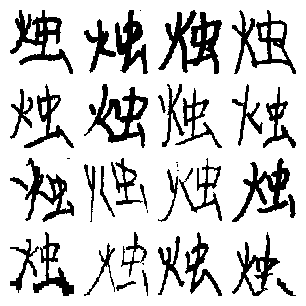 烛烛烛烛
烛烛烛烛
烛烛烛烛
烛烛烛烛